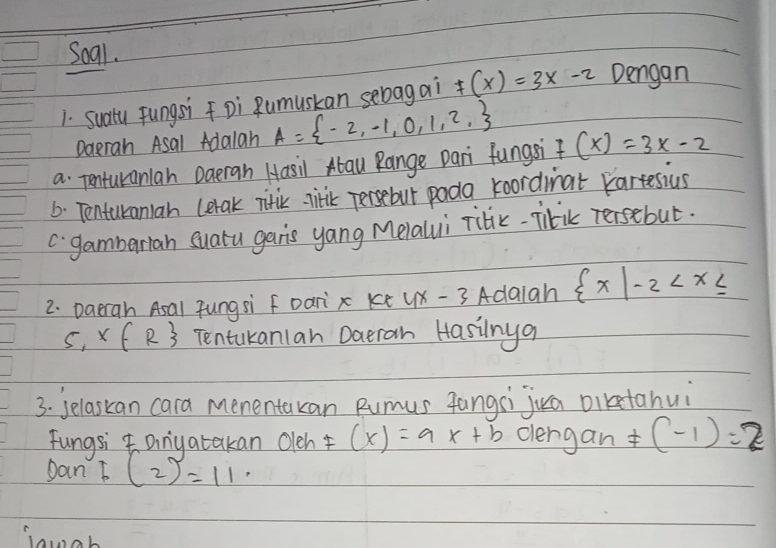 Soal.
1. Suatu Fungsi F Di Rumuskan sebagai f(x) = 3x - 2 Dengan
Daerah Asal Adalah A = {-2, -1, 0, 1, 2, }
a. Tentukanlah Daerah Hasil Atau Range Dari fungsi f(x) = 3x - 2
b. Tentukanlah Letak Titik-Titik Tersebut pada koordinat kartesius
c. gambarlah Suatu garis yang Melalui Titik-Titik Tersebut.
2. Daerah Asal fungsi f Dari x Ke 4x - 3 Adalah {x | -2 < x ≤
5, x { R } Tentukanlah Daerah Hasilnya
3. jelaskan cara Menentukan Rumus fungsi jika Diketahui
Fungsi f Dinyatakan Oleh f (x) = ax + b dengan f (-1) = 2
Dan f (2) = 11.
jawab